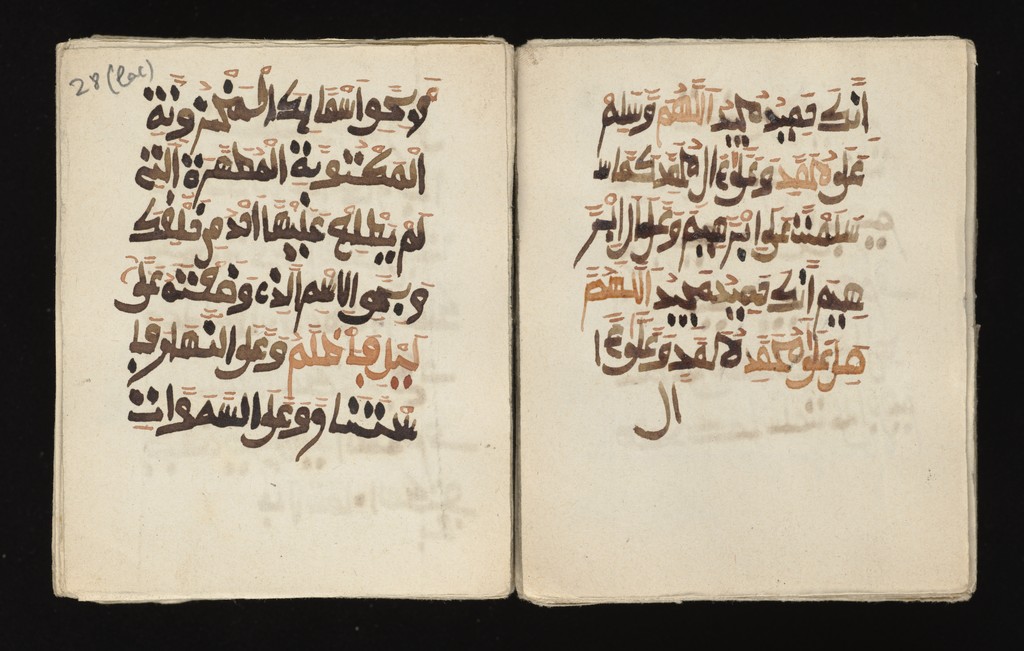 انك حميد مجيد اللهم وسلم
على محمد وعلى ءال محمد كما
سلمت على ابرهيم وعلى ءال ابر
هيم انك حميد مجيد اللهم
صل على محمد محمد وعلى ءا
ال
28 (lac)
و بحق اسمايك المخزونة
المكنونة المطهرة التي
لم يطلع عليها احد من خلقك
و بحق الاسم الذي وضعته على
ليل فاظلم وعلى النهار فا
ستنار و وعلى السموات